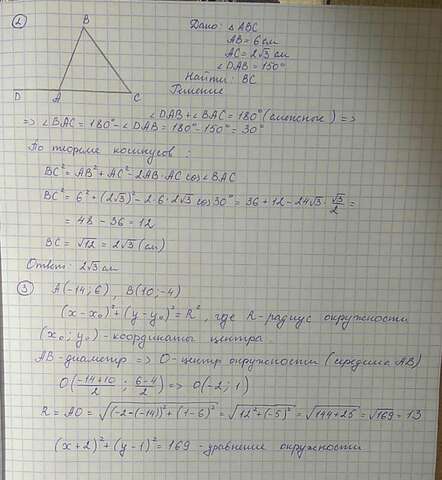 2
B
D A C
Дано: △ABC
AB = 6 см
AC = 2√3 см
∠DAB = 150°
Найти: BC
Решение
∠DAB + ∠BAC = 180° (смежные) =>
=> ∠BAC = 180° - ∠DAB = 180° - 150° = 30°
По теореме косинусов:
BC² = AB² + AC² - 2AB·AC cos∠BAC
BC² = 6² + (2√3)² - 2·6·2√3 cos30° = 36 + 12 - 24√3 · √3/2 =
= 48 - 36 = 12
BC = √12 = 2√3 (см)
Ответ: 2√3 см
3 A(-14; 6), B(10; -4)
(x - x₀)² + (y - y₀)² = R², где R - радиус окружности
(x₀; y₀) - координаты центра
AB - диаметр => O - центр окружности (середина AB)
O(-14+10/2; 6-4/2) => O(-2; 1)
R = AO = √(-2-(-14))² + (1-6)² = √12² + (-5)² = √144 + 25 = √169 = 13
(x + 2)² + (y - 1)² = 169 - уравнение окружности